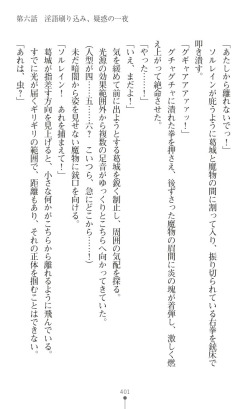 第六話　淫語刷り込み、疑惑の一夜
「あたしから離れないでっ！」
ソルレインが庇うように葛城と魔物の間に割って入り、振り切られている右拳を銃床で
叩き潰す。
「グギャアアアアァッ！」
グチャグチャに潰された拳を押さえ、後ずさった魔物の眉間に炎の塊が着弾し、激しく燃
え上がって絶命させた。
「やった……！」
「いえ、まだよ！」
気を緩めて前に出ようとする葛城を鋭く制止し、周囲の気配を探る。
光源の効果範囲外から複数の足音がゆっくりとこちらへ向かってきていた。
（人型が四……五……六？　こいつら、急にどこから……！）
未だ暗闇から姿を見せない魔物に銃口を向ける。
「ソルレイン！　あれを捕まえて！」
葛城が指差す方向を見上げると、小さな何かがこちらから離れるように飛んでいる。
すでに光が届くギリギリの範囲で、距離もあり、それの正体を掴むことはできない。
「あれは、虫？」
401